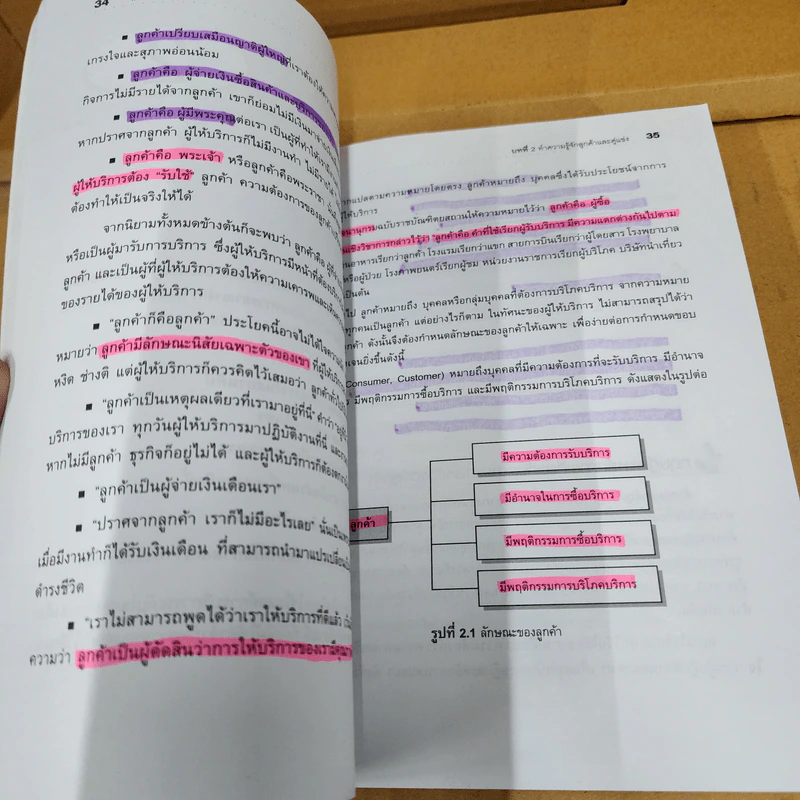 34
■ ลูกค้าเปรียบเสมือนญาติผู้ใหญ่ที่เราต้องให้ความ
เกรงใจและสุภาพอ่อนน้อม
■ ลูกค้าคือ ผู้จ่ายเงินซื้อสินค้าและบริการ
กิจการไม่มีรายได้จากลูกค้า เขาก็ย่อมไม่มีเงินมา
■ ลูกค้าคือ ผู้มีพระคุณต่อเรา เป็นผู้ที่ทำให้เรามี
หากปราศจากลูกค้า ผู้ให้บริการก็ไม่มีงานทำ ไม่มีรายได้
■ ลูกค้าคือ พระเจ้า หรือลูกค้าคือพระราชา
ผู้ให้บริการต้อง "รับใช้" ลูกค้า ความต้องการของลูกค้า
ต้องทำให้เป็นจริงให้ได้
จากนิยามทั้งหมดข้างต้นก็จะพบว่า ลูกค้าคือ
หรือเป็นผู้มารับการบริการ ซึ่งผู้ให้บริการมีหน้าที่ต้อง
ลูกค้า และเป็นผู้ที่ผู้ให้บริการต้องให้ความเคารพและ
ของรายได้ของผู้ให้บริการ
■ "ลูกค้าก็คือลูกค้า" ประโยคนี้อาจไม่ได้ใจความ
หมายว่า ลูกค้ามีลักษณะนิสัยเฉพาะตัวของเขา ที่ผู้ให้บริการ
หงิด ช่างติ แต่ผู้ให้บริการก็ควรคิดไว้เสมอว่า ลูกค้า
■ "ลูกค้าเป็นเหตุผลเดียวที่เรามาอยู่ที่นี่" คำว่า
บริการของเรา ทุกวันผู้ให้บริการมาปฏิบัติงานที่นี่ และ
หากไม่มีลูกค้า ธุรกิจก็อยู่ไม่ได้ และผู้ให้บริการก็ต้อง
■ "ลูกค้าเป็นผู้จ่ายเงินเดือนเรา"
■ "ปราศจากลูกค้า เราก็ไม่มีอะไรเลย" นั่นเป็น
เมื่อมีงานทำก็ได้รับเงินเดือน ที่สามารถนำมาแปรเปลี่ยน
ดำรงชีวิต
■ "เราไม่สามารถพูดได้ว่าเราให้บริการที่ดีแล้ว
ความว่า ลูกค้าเป็นผู้ตัดสินว่าการให้บริการของเรามีคุณ
บทที่ 2 ทำความรู้จักลูกค้าและคู่แข่ง 35
กแปลตามความหมายโดยตรง ลูกค้าหมายถึง บุคคลซึ่งได้รับประโยชน์จากการ
ให้บริการ
จนานุกรมฉบับราชบัณฑิตยสถานให้ความหมายไว้ว่า ลูกค้าคือ ผู้ซื้อ
นเชิงวิชาการกล่าวไว้ว่า "ลูกค้าคือ คำที่ใช้เรียกผู้รับบริการ มีความแตกต่างกันไปตาม
นอาหารเรียกว่าลูกค้า โรงแรมเรียกว่าแขก สายการบินเรียกว่าผู้โดยสาร โรงพยาบาล
หรือผู้ป่วย โรงภาพยนตร์เรียกผู้ชม หน่วยงานราชการเรียกผู้บริโภค บริษัทนำเที่ยว
เป็นต้น
ไป ลูกค้าหมายถึง บุคคลหรือกลุ่มบุคคลที่ต้องการบริโภคบริการ จากความหมาย
ทุกคนเป็นลูกค้า แต่อย่างไรก็ตาม ในทัศนะของผู้ให้บริการ ไม่สามารถสรุปได้ว่า
ลูกค้า ดังนั้นจึงต้องกำหนดลักษณะของลูกค้าให้เฉพาะ เพื่อง่ายต่อการกำหนดขอบ
เจนยิ่งขึ้นดังนี้
(Consumer, Customer) หมายถึงบุคคลที่มีความต้องการที่จะรับบริการ มีอำนาจ
มีพฤติกรรมการซื้อบริการ และมีพฤติกรรมการบริโภคบริการ ดังแสดงในรูปต่อ
ลูกค้า
มีความต้องการรับบริการ
มีอำนาจในการซื้อบริการ
มีพฤติกรรมการซื้อบริการ
มีพฤติกรรมการบริโภคบริการ
รูปที่ 2.1 ลักษณะของลูกค้า